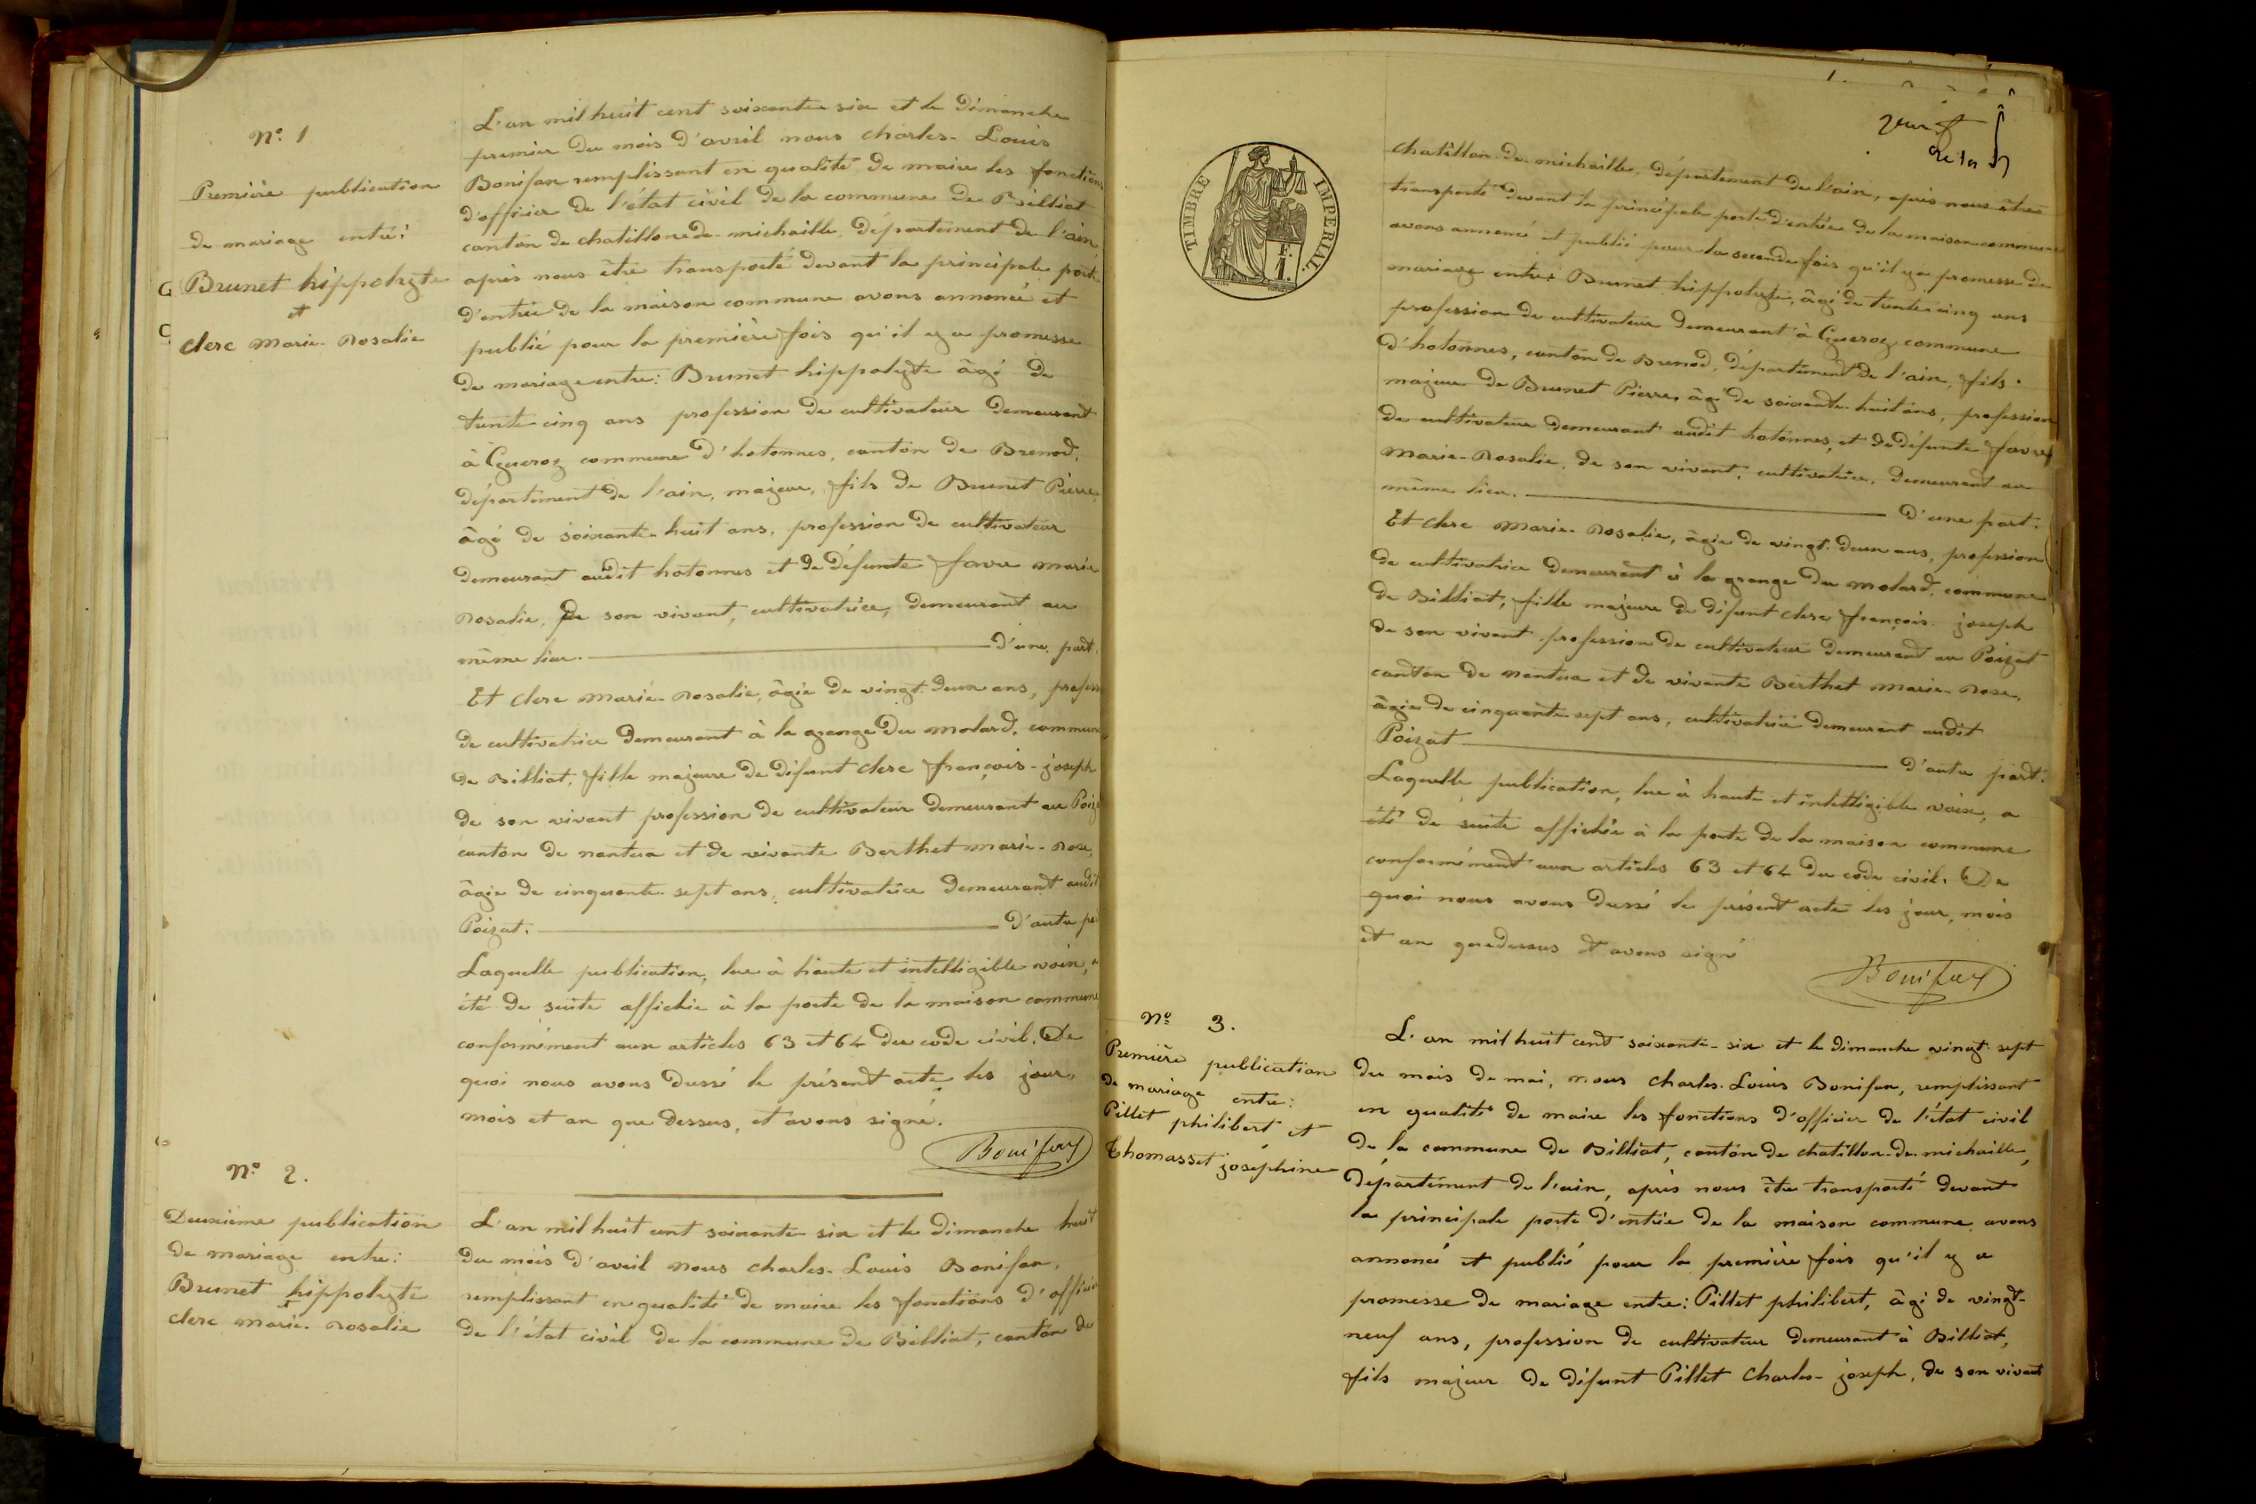 N.º 1
Première publication
de mariage entre:
Brunet hippolyte
et
Clerc Marie-Rosalie
L'an mil huit cent soixante six et le Dimanche
premier du mois d'avril nous Charles-Louis
Bonifax remplissant en qualité de maire les fonctions
d'officier de l'état civil de la commune de Billiat
canton de chatillon de michaille, département de l'ain
après nous être transporté devant la principale porte
d'entrée de la maison commune avons annoncé et
publié pour la première fois qu'il y a promesse
de mariage entre: Brunet hippolyte âgé de
trente cinq ans profession de cultivateur demeurant
à commune d'hotonnes, canton de Brenod,
département de l'ain, majeur, fils de Brunet Pierre,
âgé de soixante-huit ans, profession de cultivateur
demeurant audit hotonnes et de défunte favre marie
Rosalie, de son vivant, cultivatrice, demeurant au
même lieu. d'une part.
Et Clerc Marie-Rosalie, âgée de vingt-deux ans, profess
de cultivatrice demeurant à la grange du molard, commune
de Billiat, fille majeure de défunt clerc françois-joseph
de son vivant profession de cultivateur demeurant au Poiz
canton de nantua et de vivante Berthet marie-Rose,
âgée de cinquante sept ans, cultivatrice demeurant audit
Poizat. D'autre pa
Laquelle publication, lue à haute et intelligible voix, a
été de suite affichée à la porte de la maison commune
conformément aux articles 63 et 64 du code civil. De
quoi nous avons dressé le présent acte, les jour,
mois et an que dessus, et avons signé.
Bonifax
N.º 2.
Deuxième publication
de mariage entre:
Brunet hippolyte
et
clerc marie-Rosalie
L'an mil huit cent soixante six et le dimanche huit
du mois d'avril nous Charles-Louis Bonifax,
remplissant en qualité de maire les fonctions d'officier
de l'état civil de la commune de Billiat, canton de
1
TIMBRE IMPERIAL.
F.
1.
chatillon-de-michaille, département de l'ain, après nous être
transporté devant la principale porte d'entrée de la maison commune
avons annoncé et publié pour la seconde fois qu'il y a promesse de
mariage entre: Brunet hippolyte, âgé de trente-cinq ans
profession de cultivateur demeurant à commune
d'hotonnes, canton de Brenod, département de l'ain, fils
majeur de Brunet Pierre, âgé de soixante-huit ans, profession
de cultivateur demeurant audit hotonnes, et de défunte favre
Marie-Rosalie, de son vivant, cultivatrice, demeurant au
même lieu. D'une part.
Et clerc Marie-Rosalie, âgée de vingt-deux ans, profession
de cultivatrice demeurant à la grange du molard, commune
de Billiat, fille majeure de défunt clerc françois-joseph
de son vivant profession de cultivateur demeurant au Poizat
canton de nantua et de vivante Berthet Marie-Rose,
âgée de cinquante-sept ans, cultivatrice demeurant audit
Poizat D'autre part.
Laquelle publication, lue à haute et intelligible voix, a
été de suite affichée à la porte de la maison commune
conformément aux articles 63 et 64 du code civil. De
quoi nous avons dressé le présent acte les jour, mois
et an que dessus et avons signé
Bonifax
N.º 3.
Première publication
de mariage entre:
Pillet philibert et
Thomasset joséphine
L'an mil huit cent soixante-six et le dimanche vingt-sept
du mois de mai, nous Charles-Louis Bonifax, remplissant
en qualité de maire les fonctions d'officier de l'état civil
de la commune de Billiat, canton de chatillon-de-michaille,
département de l'ain, après nous être transporté devant
la principale porte d'entrée de la maison commune, avons
annoncé et publié pour la première fois qu'il y a
promesse de mariage entre: Pillet philibert, âgé de vingt-
neuf ans, profession de cultivateur demeurant à Billiat,
fils majeur de défunt Pillet Charles-joseph, de son vivant